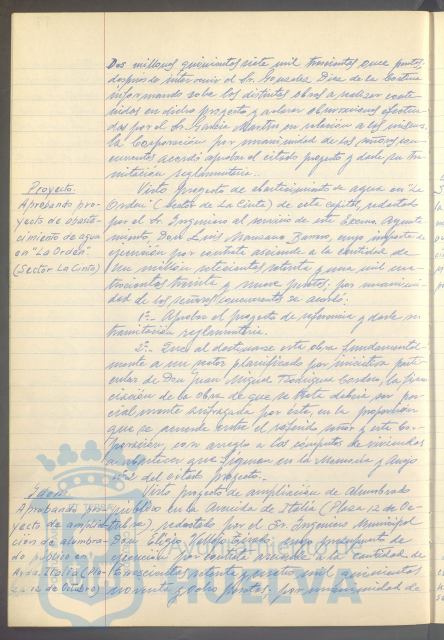 Dos millones quinientos siete mil trescientas once pesetas,
después de intervenir el Sr. González Díaz de la Cortina
informando sobre las distintas obras a realizar conte
nidas en dicho proyecto y aclarar observaciones efectua-
das por el Sr. García Martín en relación a los mismos,
la Corporación por unanimidad de los señores con-
currentes acordó aprobar el citado proyecto y darle su tra-
mitación reglamentaria.
Proyecto.
Aprobando pro-
yecto de abaste-
cimiento de agua
en "La Orden"
(Sector La Cinta)
Visto proyecto de abastecimiento de agua en "La
Orden" (Sector de La Cinta) de esta capital, redactado
por el Sr. Ingeniero al servicio de este Excmo. Ayunta
miento, Don Luis Manzano Barrero, cuyo importe de
ejecución por contrata asciende a la cantidad de
Un millón seiscientas setenta y una mil cua-
trocientas treinta y nueve pesetas; por unanimi-
dad de los señores concurrentes se acordó:
1º.- Aprobar el proyecto de referencia y darle su
tramitación reglamentaria.
2º.- Que al destinarse esta obra fundamental-
mente a un sector planificado por iniciativa parti-
cular de Don Juan Miguel Rodríguez Cordero, la finan
ciación de la obra de que se trata deberá ser par-
cialmente sufragada por éste, en la proporción
que se acuerde entre el referido señor y esta Cor-
poración, con arreglo a los cómputos de viviendas
a abastecer que figuran en la Memoria y Anejo
nº 2 del citado proyecto.
Idem.
Aprobando pro-
yecto de amplia-
ción de alumbra-
do público en
Avda. Italia (Pla-
za 12 de Octubre)
Visto proyecto de ampliación de Alumbrado
público en la Avenida de Italia (Plaza 12 de Oc-
tubre), redactado por el Sr. Ingeniero Municipal
Don Eligio
ejecución por contrata asciende a la cantidad de
Trescientas setenta y cuatro mil quinientas
noventa y ocho pesetas; por unanimidad de
Ayuntamiento de
HUELVA